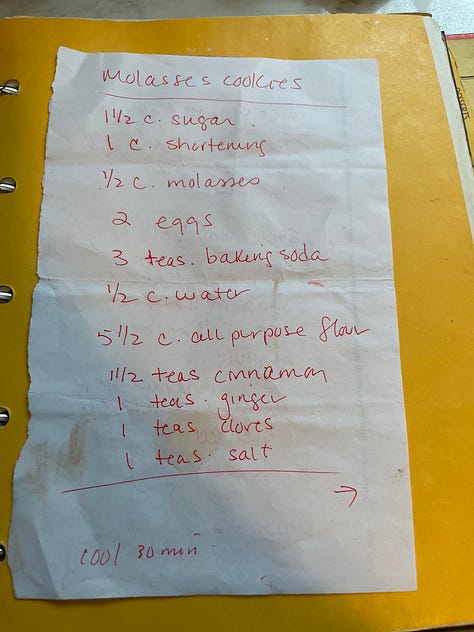 Molasses cookies
1 1/2 c. sugar.
1 c. shortening
1/2 c. molasses
2 eggs
3 teas. baking soda
1/2 c. water
5 1/2 c. all purpose flour
1 1/2 teas cinnamon
1 teas. ginger
1 teas. cloves
1 teas. salt
→
cool 30 min.